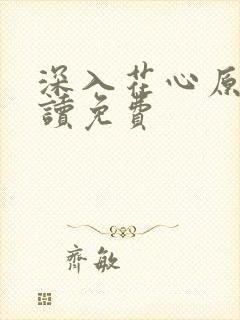 深入花心原
讀免費
齊敏